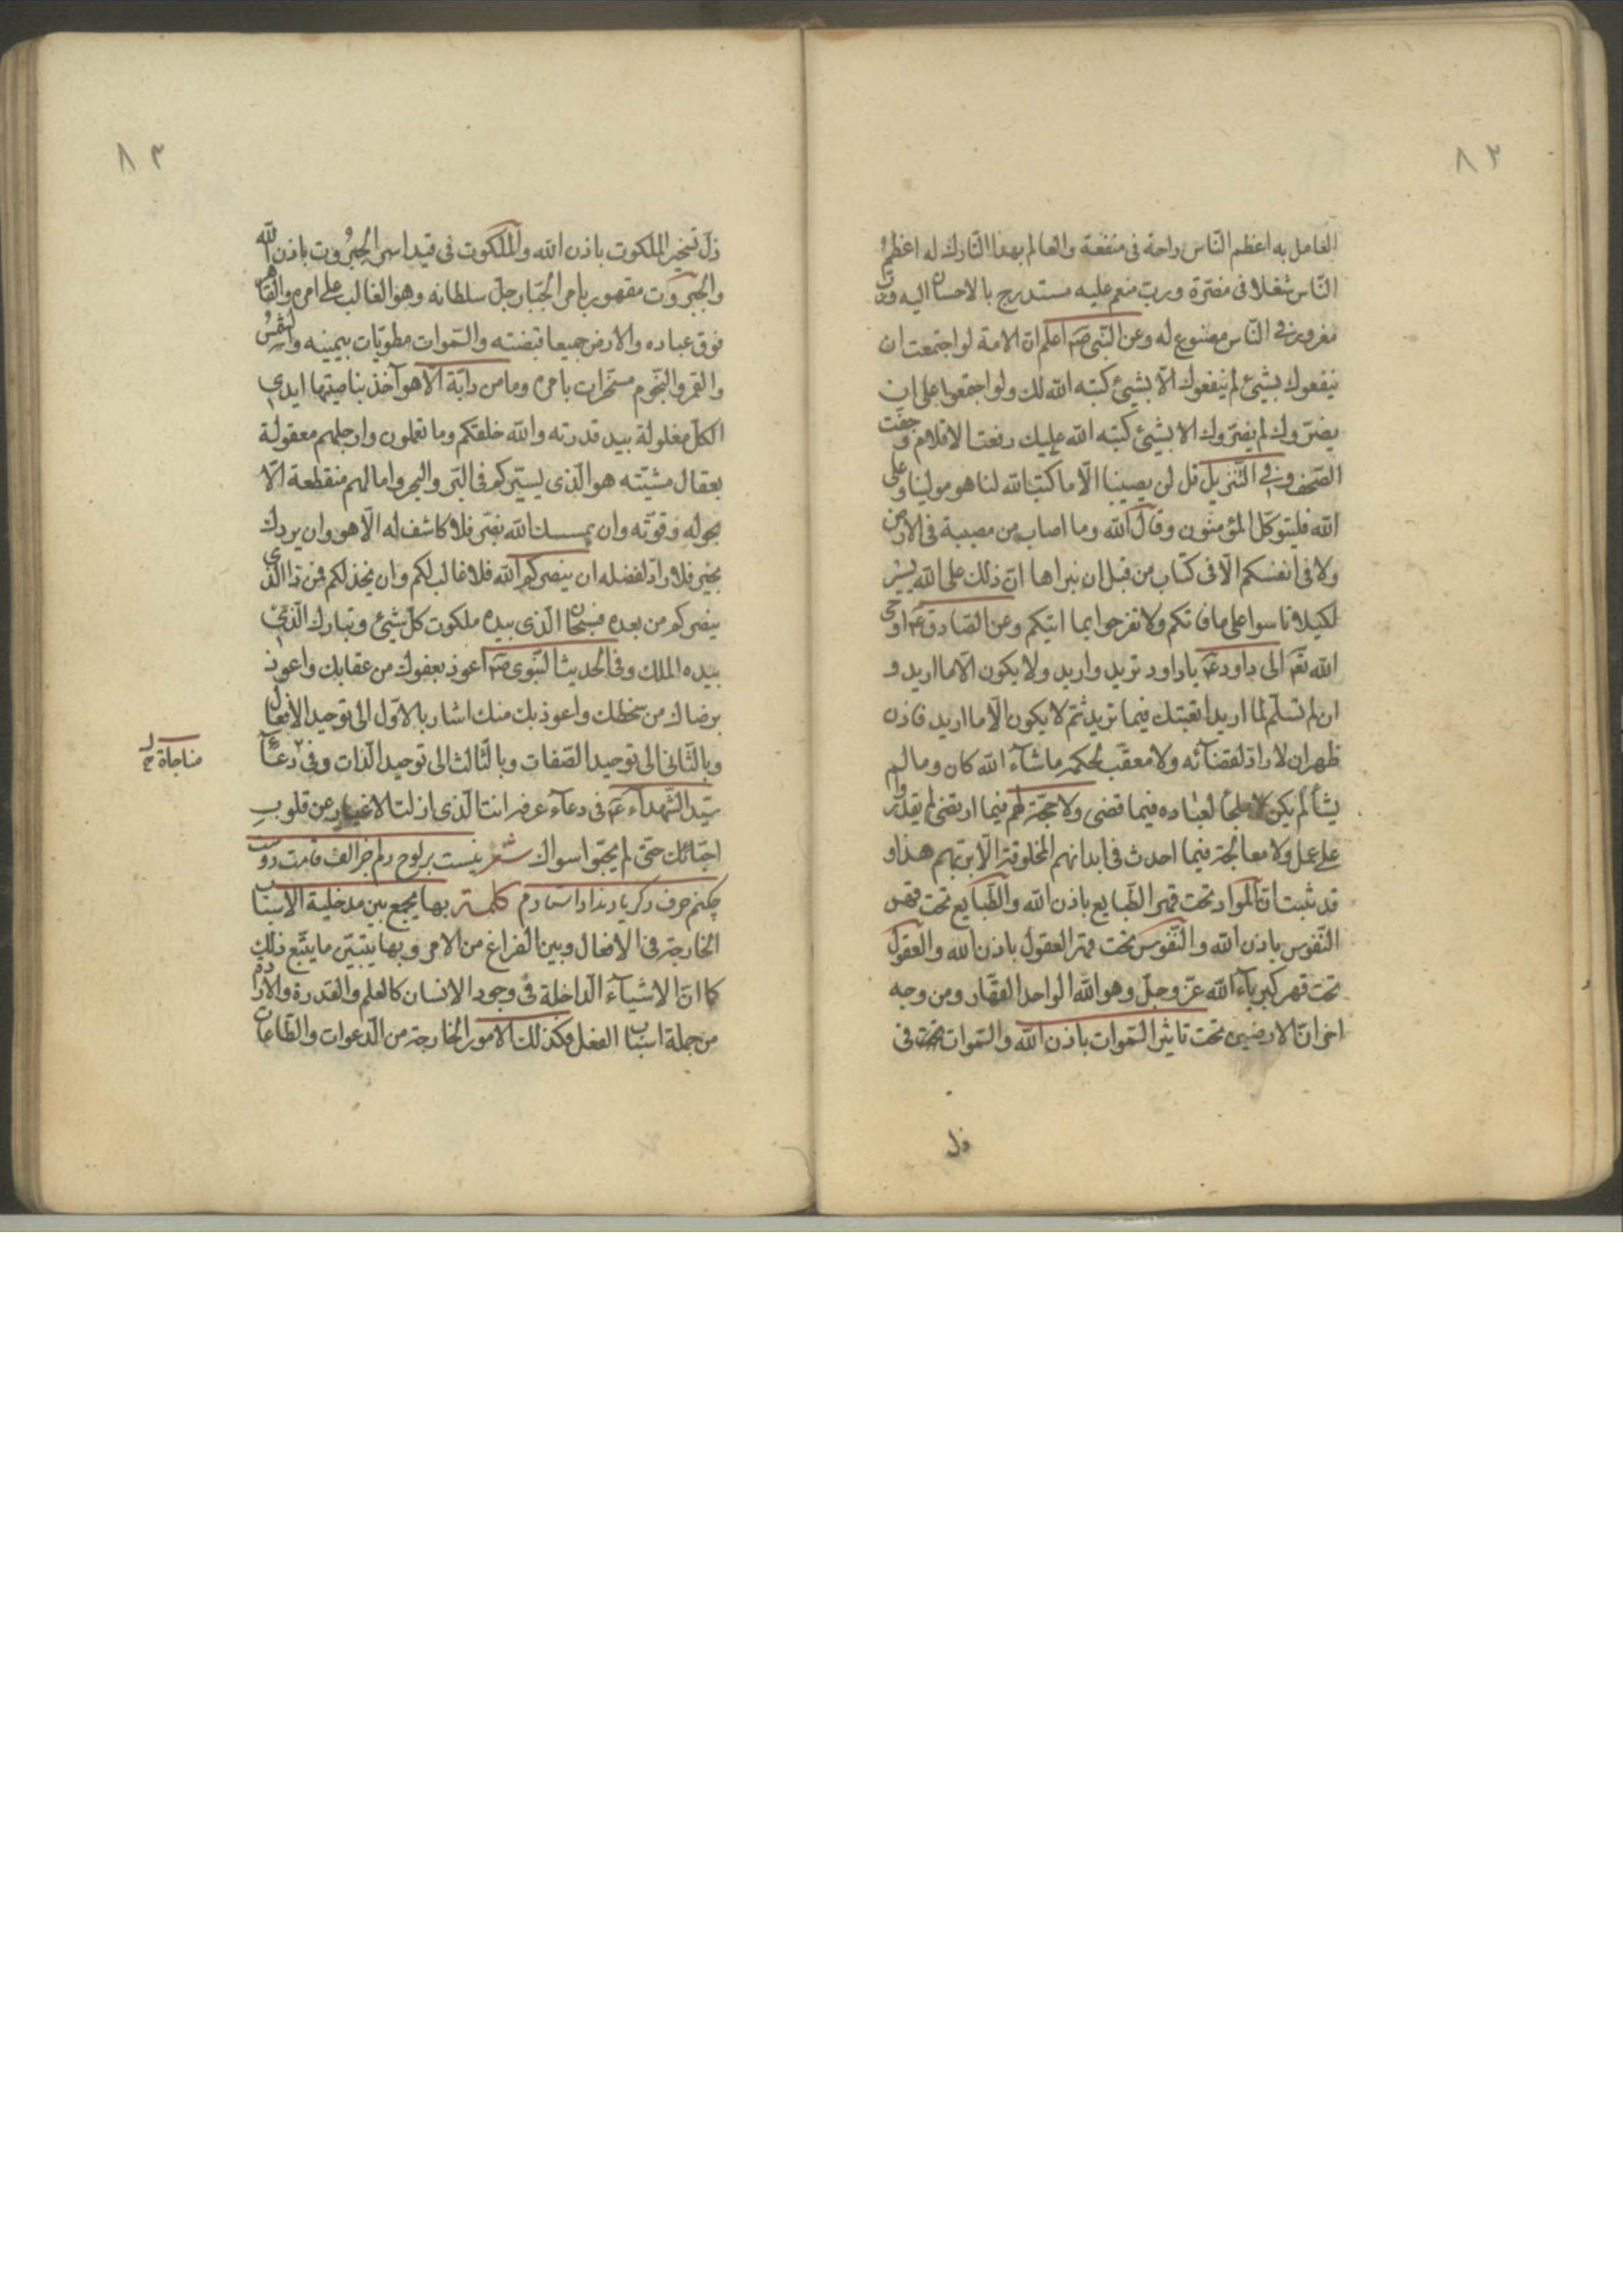 ٨٢
العامل به اعظم النّاس راحة فى منفعة والعالم بهذا التّارك له اعظم
النّاس شغلا فى مضرّة وربّ منعم عليه مستدرج بالاحسان اليه وربّ
مغرور فى النّاس مصنوع له وعن النّبى صم اعلم انّ الامة لو اجتمعت ان
ينفعوك بشيئ لم ينفعوك الّا بشيئ كتبه الله لك ولو اجتمعوا على ان
يضرّوك لم يضرّوك الا بشيئ كتبه الله عليك رفعت الاقلام وجفّت
الصّحف وفى التّنزيل قل لن يصيبنا الّا ما كتب الله لنا هو مولينا وعلى
الله فليتوكّل المؤمنون وقال الله وما اصاب من مصيبة فى الارض
ولا فى انفسكم الّا فى كتاب من قبل ان نبراها انّ ذلك على الله يسير
لكيلا تاسوا على مافاتكم ولا تفرحوا بما اتيكم وعن الصّادق عم اوحى
الله تعم الى داود عم ياداود تريد واريد ولا يكون الّا ما اريد و
ان لم تسلّم لما اريد اتعبتك فيما تريد ثمّ لا يكون الّا ما اريد فاذن
ظهر ان لا رادّ لقضآئه ولا معقّب لحكمه ماشآء الله كان وما لم
يشأ لم يكن لا ملجأ لعباده فيما قضى ولا حجّة لهم فيما ارتضى لم يقدروا
على عمل ولا معالجة فيما احدث فى ابدانهم المخلوقة الّا بربّهم هذا و
قد ثبت انّ الموادّ تحت قهر الطّبايع باذن الله والطّبايع تحت قهر
النّفوس باذن الله والنّفوس تحت قهر العقول باذن الله والعقول
تحت قهر كبرياء الله عزّ وجلّ وهو الله الواحد القهّار ومن وجه
اخر انّ الارضين تحت تاثير السّموات باذن الله والسّموات تحت فى
ذل
٨٣
ذلّ تسخير الملكوت باذن الله والملكوت فى قيد اسر الجبروت باذن الله
والجبروت مقهور بامر الجبّار جلّ سلطانه وهو الغالب على امره والقاهر
فوق عباده والارض جميعا قبضته والسّموات مطويّات بيمينه والشّمس
والقمر والنّجوم مسخّرات بامره وما من دابّة الّا هو آخذ بناصيتها ايدى
الكلّ مغلولة بيد قدرته والله خلقكم وما تعملون وارجلهم معقولة
بعقال مشيّته هو الّذى يسيّركم فى البّر والبحر وامالهم منقطعة الّا
بحوله وقوّته وان يمسسك الله بضّر فلا كاشف له الّا هو وان يردك
بخير فلا رادّ لفضله ان ينصركم الله فلا غالب لكم وان يخذلكم فمن ذا الّذى
ينصركم من بعده فسبحان الّذى بيده ملكوت كلّ شيئ وتبارك الّذى
بيده الملك وفى الحديث النّبوى صم اعوذ بعفوك من عقابك واعوذ
برضاك من سخطك واعوذ بك منك اشار بالاوّل الى توحيد الافعال
وبالثّانى الى توحيد الصّفات وبالثّالث الى توحيد الذّات وفى دعآء
مناجاة
سيّد الشّهداء عم فى دعآء عرفه انت الّذى ازلت الاغيار عن قلوب
احبّائك حتى لم يحبّوا سواك شعر نيست بر لوح دلم جز الف قامت دوست
چكنم حرف دكر ياد نداد استادم كلمة بها يجمع بين مدخلية الاسباب
الخارجة فى الافعال وبين الفراغ من الامر وبها يتبيّن ما يتّبع ذلك
كما انّ الاشيآء الدّاخلة فى وجود الانسان كالعلم والقدرة والارادة
من جملة اسباب الفعل فكذلك الامور الخارجة من الدّعوات والطّاعات